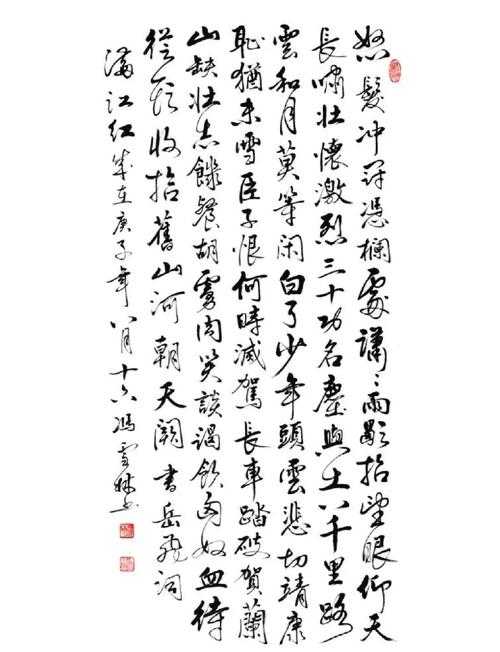 怒髮冲冠憑欄處瀟〻雨歇抬望眼仰天
長嘯壯懷激烈三十功名塵與土八千里路
雲和月莫等闲白了少年頭空悲切靖康
恥猶未雪臣子恨何時滅駕長車踏破賀蘭
山缺壯志饑餐胡虜肉笑談渴飲匈奴血待
從頭收拾舊山河朝天闕 書岳飛詞
滿江紅 歲在庚子年八月十六馮